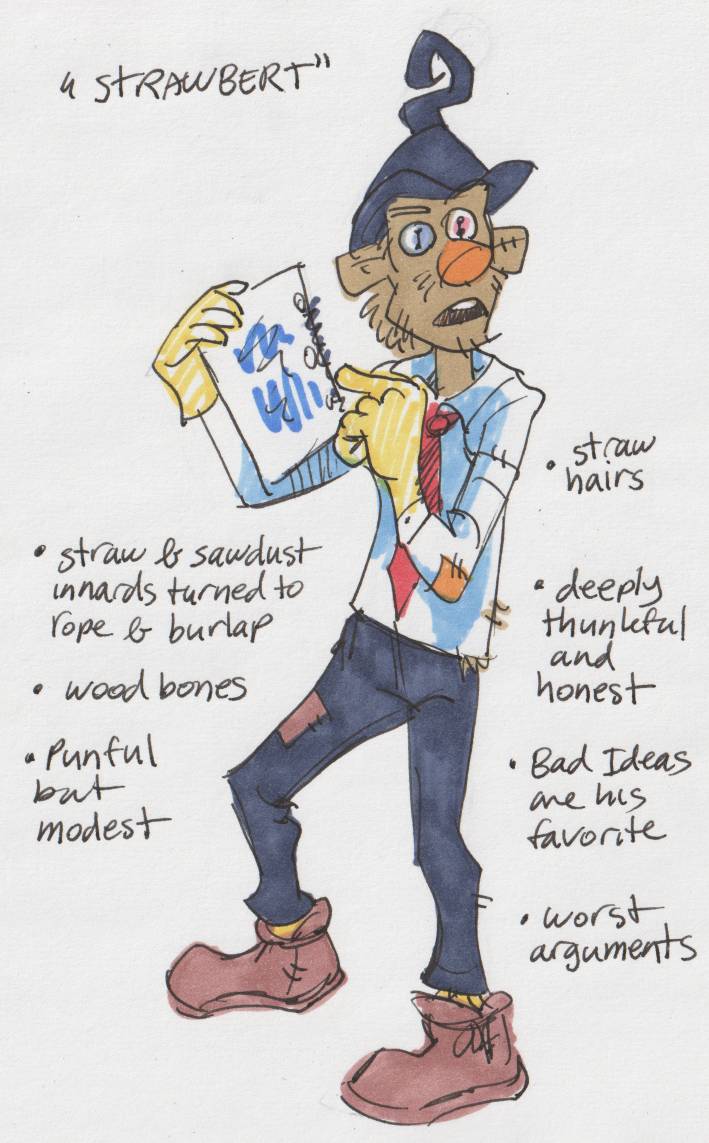 "STRAWBERT"
• straw
hairs
• straw & sawdust
innards turned to
rope & burlap
• wood bones
• Punful
but
modest
• deeply
thunkful
and
honest
• Bad Ideas
are his
favorite
• worst
arguments